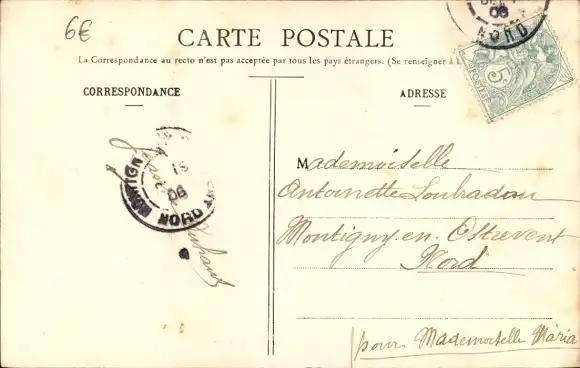 6€
CARTE POSTALE
La Correspondance au recto n'est pas acceptée par tous les pays étrangers. (Se renseigner à
CORRESPONDANCE
ADRESSE
06
NORD
5
MONTIGN
15
06
NORD
Mademoiselle
Antoinette Loubradou
Montigny-en-Ostrevent
Nord
pour Mademoiselle Maria